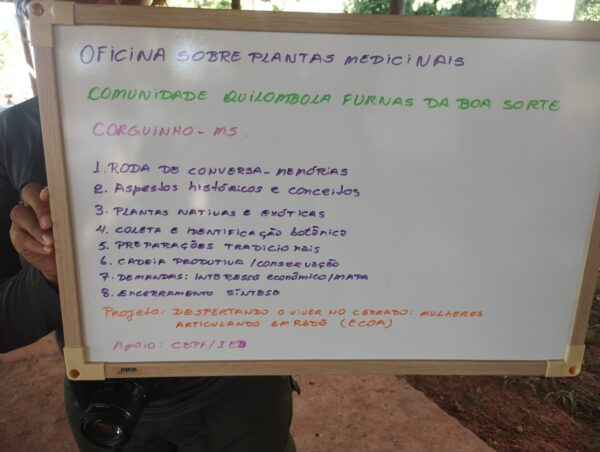 OFICINA SOBRE PLANTAS MEDICINAIS
COMUNIDADE QUILOMBOLA FURNAS DA BOA SORTE
CORGUINHO - MS.
1. RODA DE CONVERSA - MEMÓRIAS
2. Aspestos históricos e conceitos
3. PLANTAS NATIVAS E EXÓTICAS
4. COLETA E IDENTIFICAÇÃO botânica
5. PREPARAÇÕES TRADICIONAIS
6. CADEIA PRODUTIVA / CONSERVAÇÃO
7. DEMANDAS: INTERESSE ECONÔMICO / MAPA
8. ENCERRAMENTO SÍNTESE
Projeto: DESPERTANDO O VIVER NO CERRADO: MULHERES
ARTICULANDO EM REDE (ECOA)
Apoio: CEPF / IEB